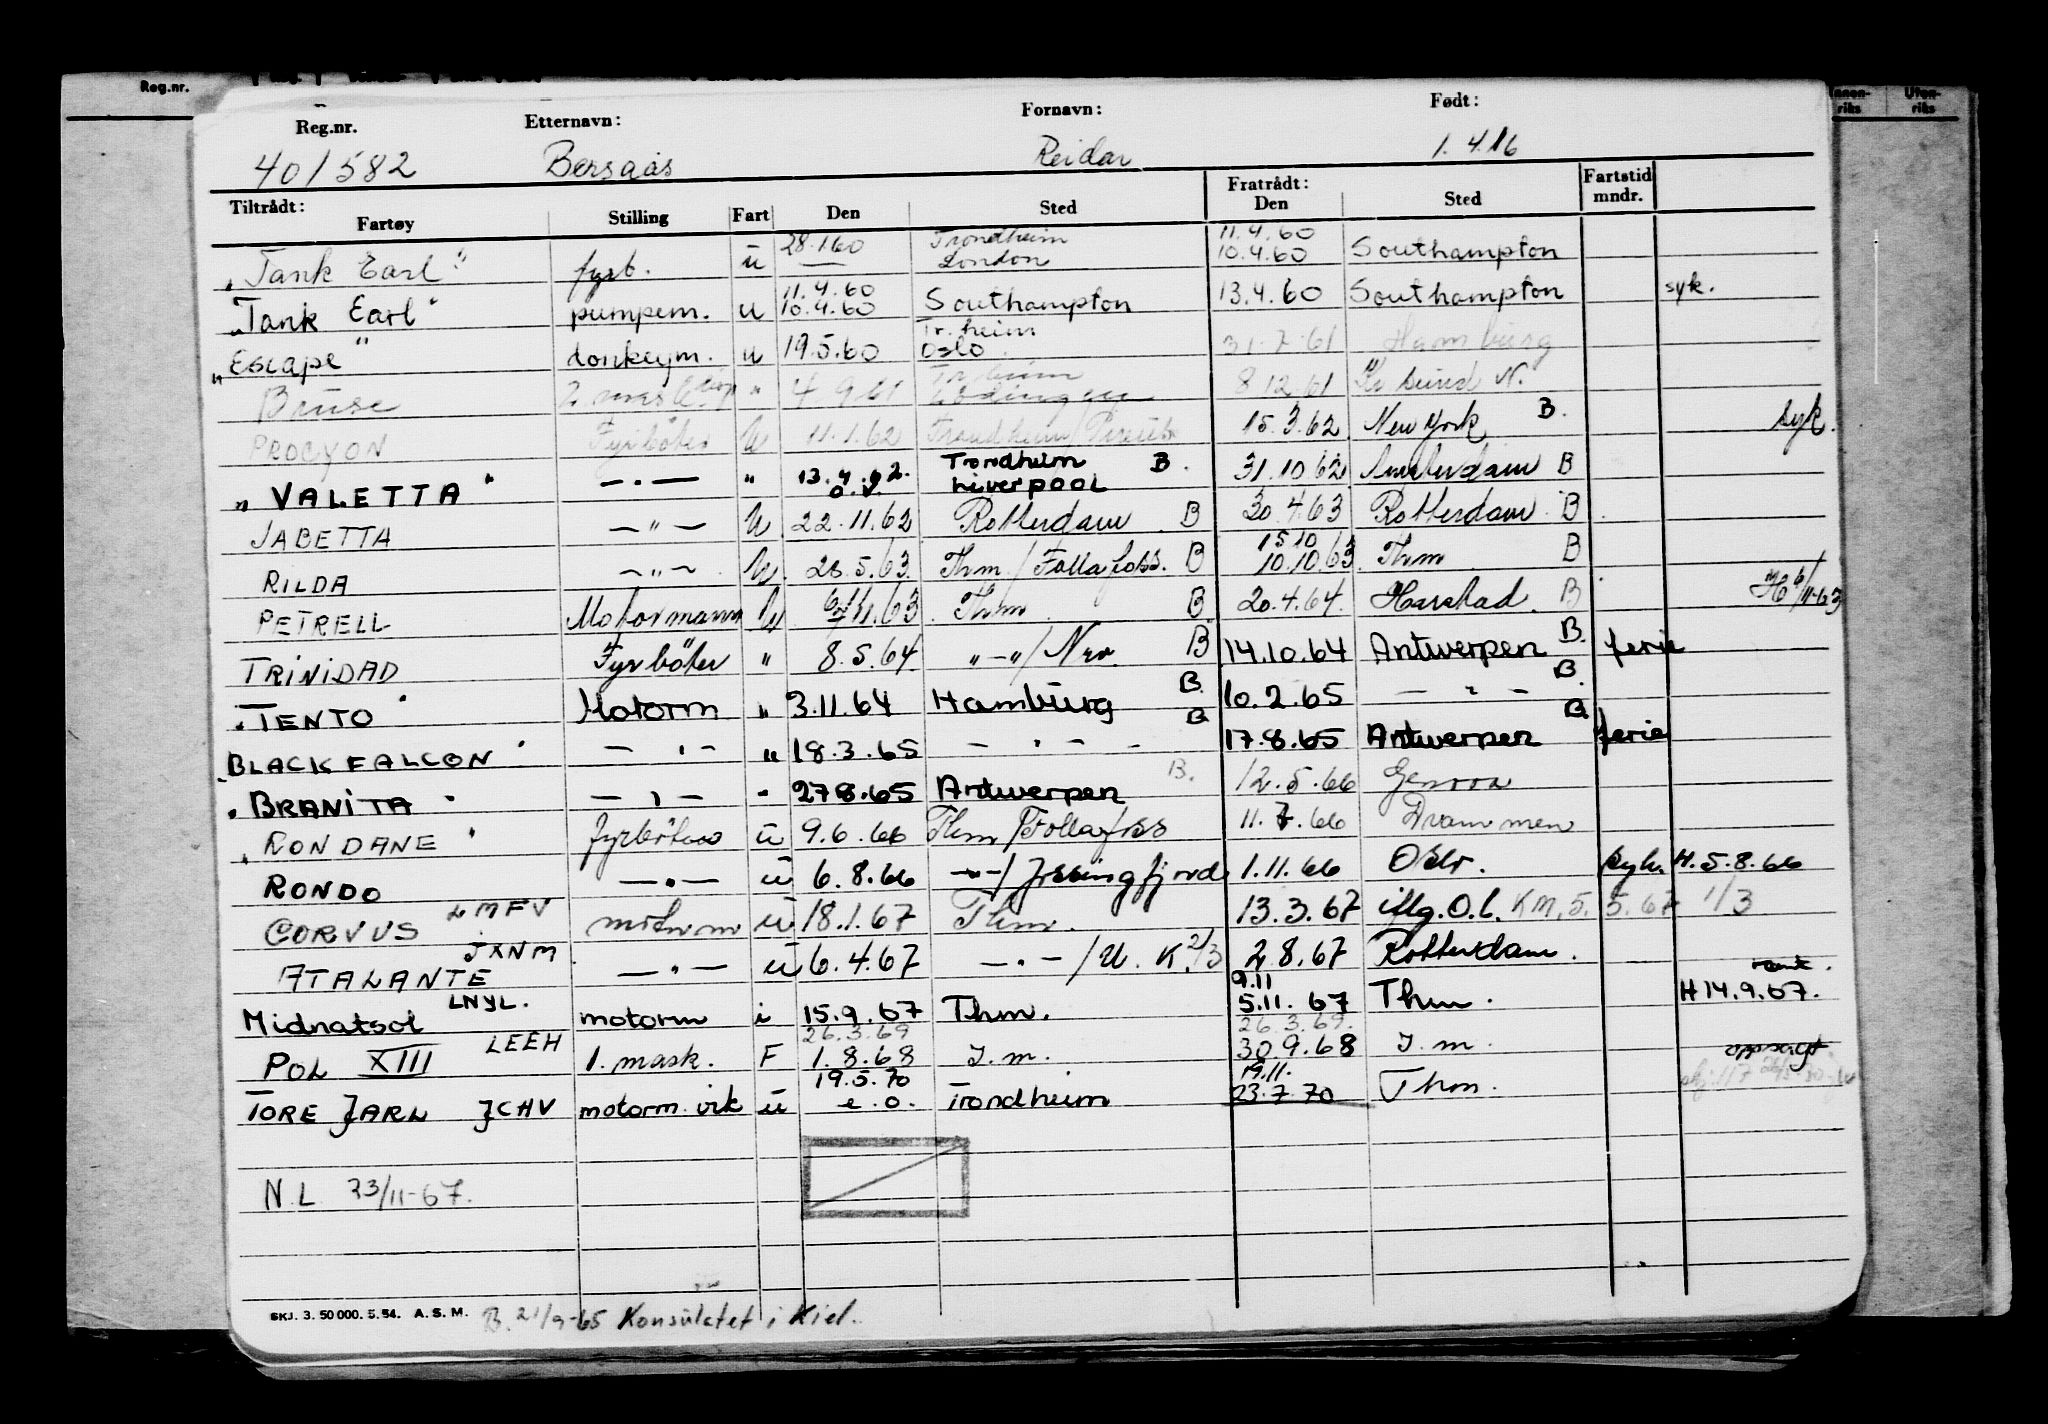 Reg.nr.
Innen-riks Uten-riks
Reg.nr. Etternavn: Fornavn: Født:
40/582 Bersaas Reidar 1.4.16
Tiltrådt: Fratrådt: Fartstid mndr.
Fartøy Stilling Fart Den Sted Den Sted
28.1.60 Trondheim 11.4.60
"Tank Earl" fyrb. u London 10.4.60 Southampton
11.4.60
"Tank Earl" pumpem. u 10.4.60 Southampton 13.4.60 Southampton syk.
Tr.heim
"Escape" donkeym. u 19.5.60 Oslo 31.7.61 Hamburg
Bruse 2. " 4.9.61 8.12.61 Kr sund N.
PROCYON Fyrbøter U 11.1.62 Trondheim/Pireus 15.3.62 New York B. syk.
"VALETTA" —.— " 13.4.62. Trondheim Liverpool B. 31.10.62 Amsterdam B
JABETTA —"— U 22.11.62 Rotterdam B 30.4.63 Rotterdam B
15.10
RILDA —"— U. 28.5.63 Thm/Follafoss. B 10.10.63 Thm B
PETRELL Motormann U 11.63 Thm B 20.4.64. Harstad. B
TRINIDAD Fyrbøter " 8.5.64 "—"/ B 14.10.64 Antwerpen B. ferie
"TENTO" Motorm " 3.11.64 Hamburg B. 10.2.65 — " — B.
"BLACK FALCON" — " — " 18.3.65 — " — B 17.8.65 Antwerpen B ferie
"BRANITA" — " — " 27.8.65 Antwerpen B. 12.5.66 Genova
"RONDANE" fyrbøter u 9.6.66 Thm/Follafoss 11.7.66 Drammen
RONDO —"— u 6.8.66 —"—/Jøssingfjord 1.11.66 Oslo. syk. H.5.8.66
CORVUS LMFV motorm u 18.1.67 Thm. 13.3.67 iflg. O.l. KM.5.5.67 1/3
ATALANTE JXNM —"— u 6.4.67 —"—/U. K.2/3 2.8.67 Rotterdam.
9.11
Midnatsol LNYL. motorm i 15.9.67 Thm. 5.11.67 Thm. H 14.9.67.
26.3.69 26.3.69.
POL XIII LEEH 1. mask. F 1.8.68 I.m. 30.9.68 I.m. oppsagt
19.5.70 19.11.
TORE JARL JCHV motorm. vik u e.o. Trondheim 23.7.70 Thm.
N.L 23/11-67.
SKJ. 3. 50 000. 5. 54. A. S. M. B. 21/9-65 Konsulatet i Kiel.